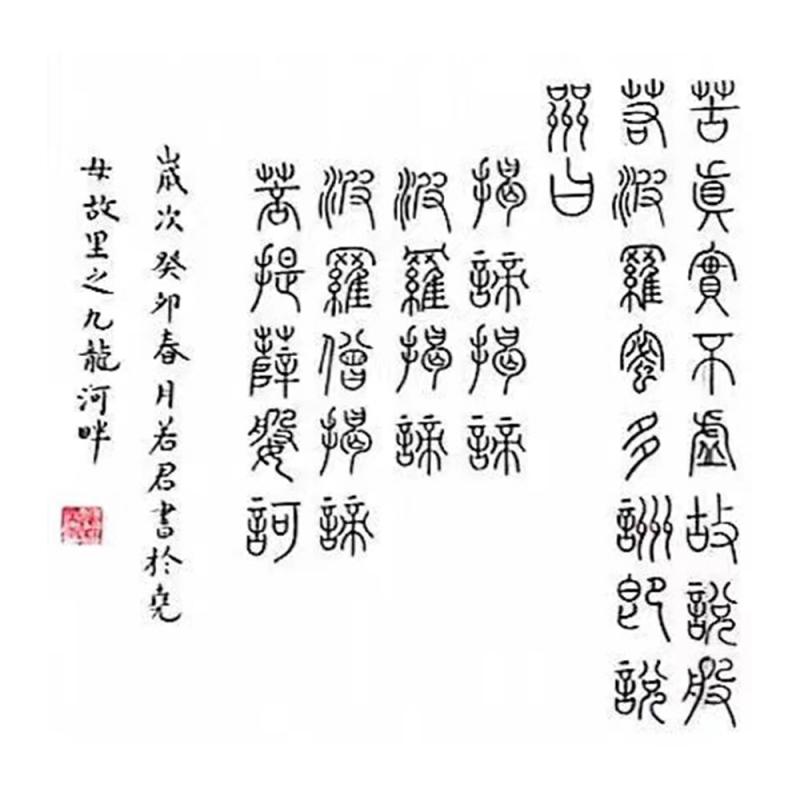 苦真實不虛故說般
若波羅蜜多詶即說
咒曰
揭諦揭諦
波羅揭諦
波羅僧揭諦
菩提薩婆訶
歲次癸卯春月若君書於堯
女故里之九龍河畔